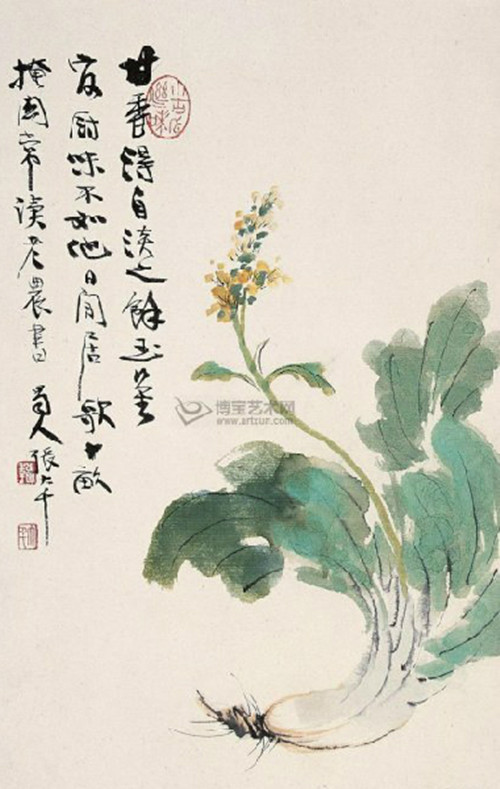 甘香得自淡之餘玉
官厨味不如他日閒居歌十畝
掩關常讀老農書 蜀人張大千
博宝艺术网
www.artxun.com